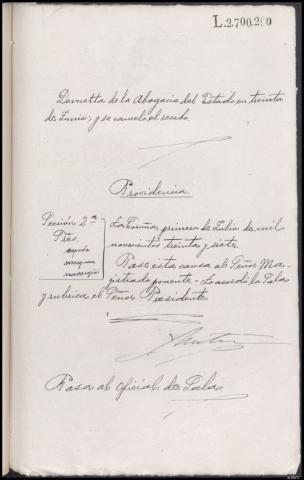 L.2.700.290
Devuelta de la Abogacia del Estado en treinta
de Junio; y se canceló el recibo.
Providencia
Sección 2ª
Ptes.
La Coruña, primero de Julio de mil
novecientos treinta y siete.
Pase esta causa al Señor Ma-
gistrado ponente. Lo acordó la Sala
y rubrica el Señor Presidente.
Pasa al oficial de Sala.